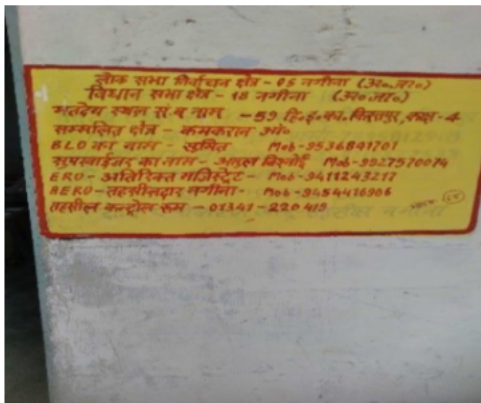 लोक सभा निर्वाचन क्षेत्र - 05 नगीना (अ०जा०)
विधान सभा क्षेत्र - 18 नगीना (अ०जा०)
मतदेय स्थल सं व नाम - 59 हि०इ०का० कक्ष - 4
सम्मलित क्षेत्र - कमकरान
BLO का नाम - सुमित Mob-9536841701
सुपरवाईजर का नाम - अतुल बिश्नोई Mob-9927570074
ERO - अतिरिक्त मजिस्ट्रेट - Mob-9411243217
AERO - तहसीलदार नगीना - Mob-9454416906
तहसील कन्ट्रोल रूम - 01341-220419